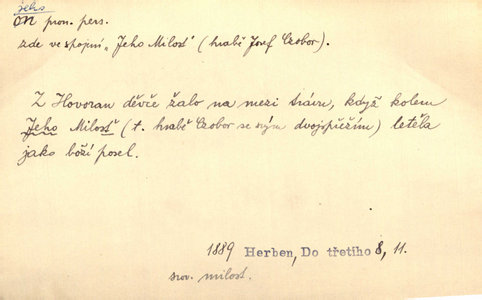 jeho
on pron. pers.
zde ve spojení „Jeho Milosť“ (hrabě Josef Czobor).
Z Hovoran děvče žalo na mezi trávu, když kolem
Jeho Milosť (t. hrabě Czobor se svým dvojspřežím) letěla
jako boží posel.
1889 Herben, Do třetího 8, 11.
srov. milost.